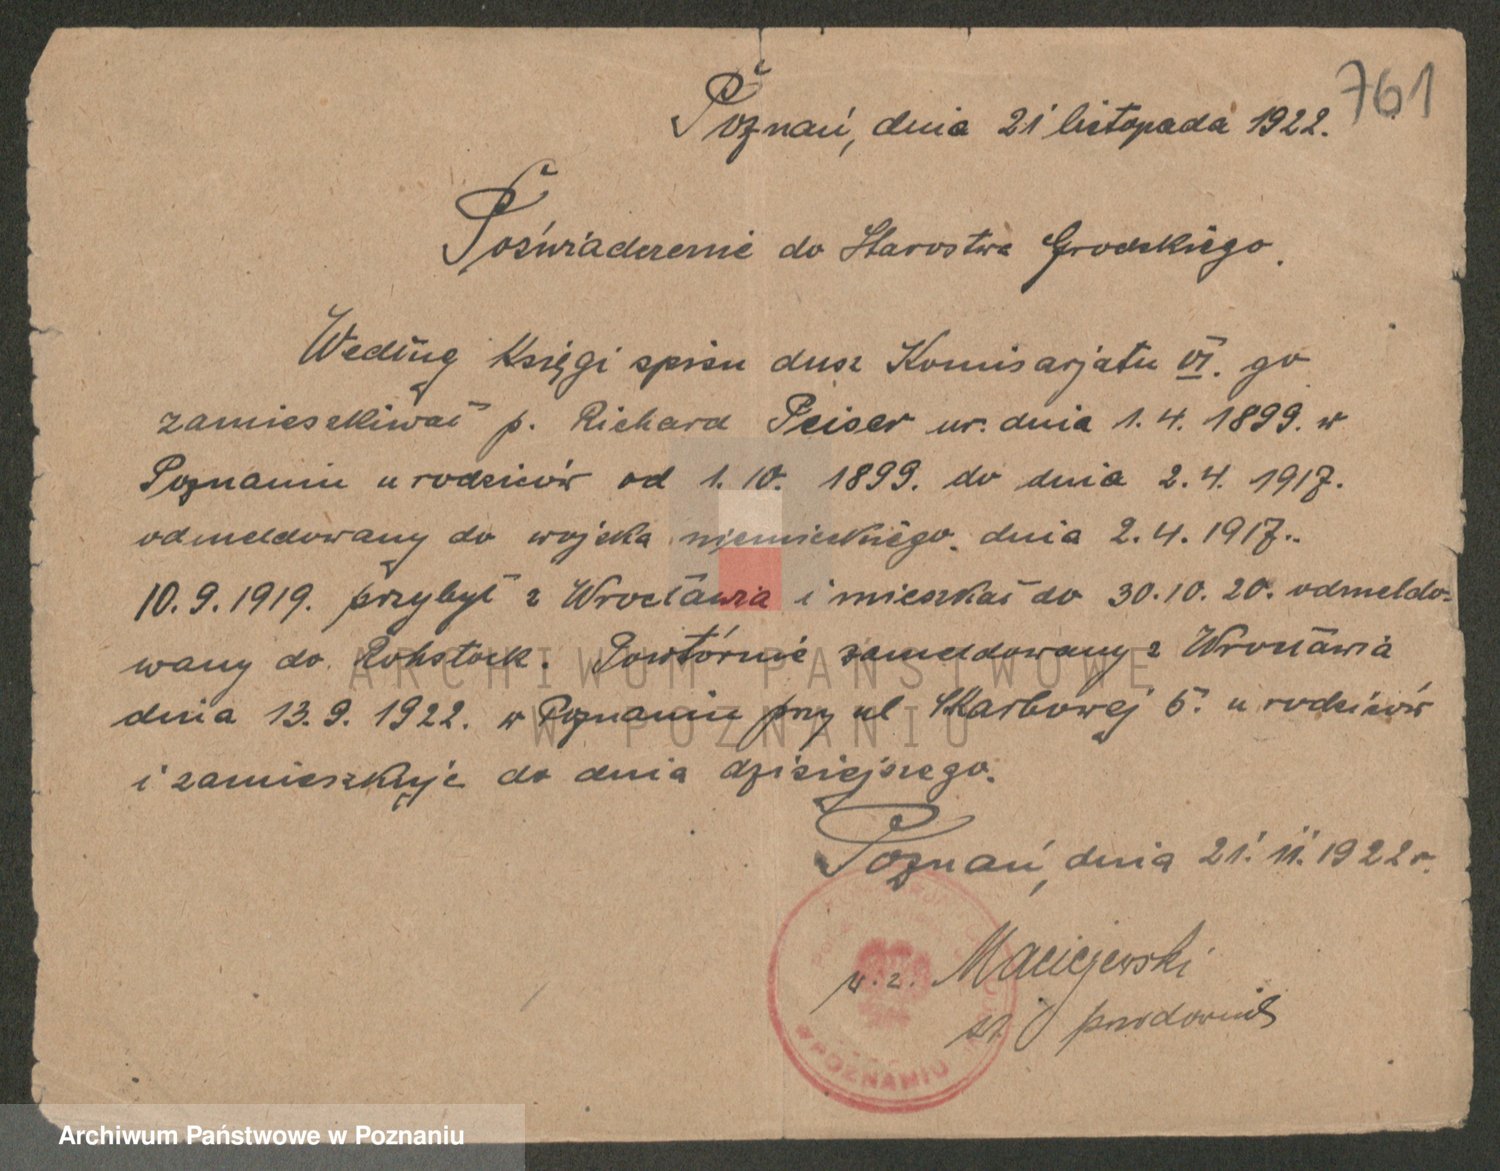 761
Poznań, dnia 21 listopada 1922.
Poświadczenie do Starostwa Grodzkiego.
Według Księgi spisu dusz Komisarjatu VI. go
zamieszkiwał p. Richard Peiser ur. dnia 1.4. 1899. w
Poznaniu u rodziców od 1.10. 1899. do dnia 2.4. 1917.
odmeldowany do wojska niemieckiego. dnia 2.4.1917..
10.9.1919. przybył z Wrocławia i mieszkał do 30.10.20. odmeldo-
wany do Rohstock. Powtórnie zameldowany z Wrocławia
dnia 13.9. 1922. w Poznaniu przy ul Skarbowej 5. u rodziców
i zamieszkuje do dnia dzisiejszego.
Poznań, dnia 21. 11. 1922 r.
w. z. Maciejewski
st. przodownik
W POZNANIU
ARCHIWUM PAŃSTWOWE
W POZNANIU
Archiwum Państwowe w Poznaniu